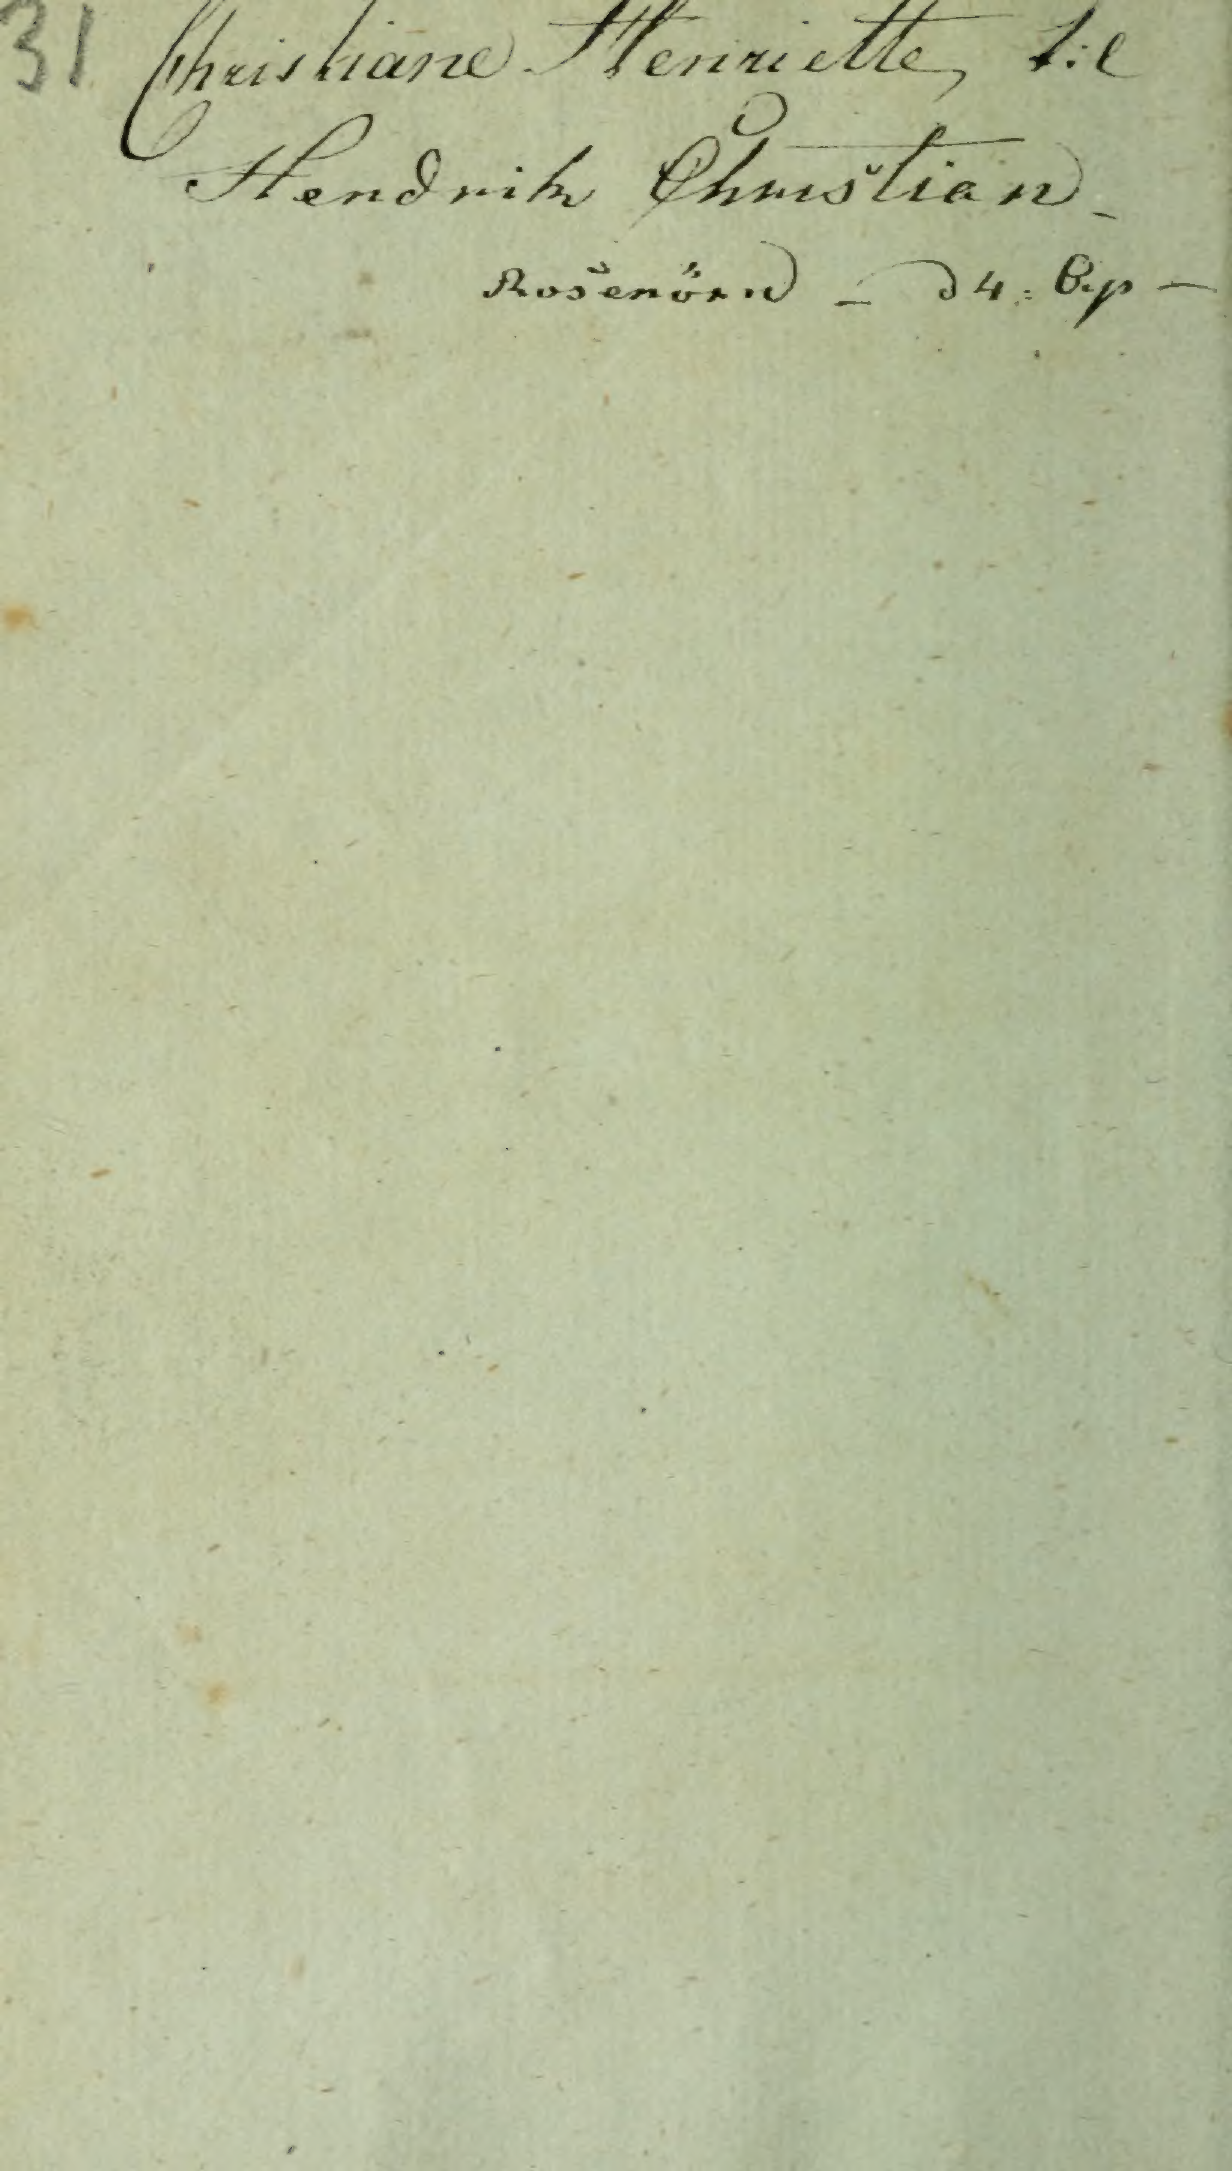 31 Christiane Henriette, 1:e
Hendrik Christian
Rosenörn – d 4: Bp –